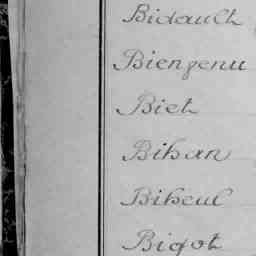 Bidault
Bienvenu
Biet
Bihan
Biheul
Bigot